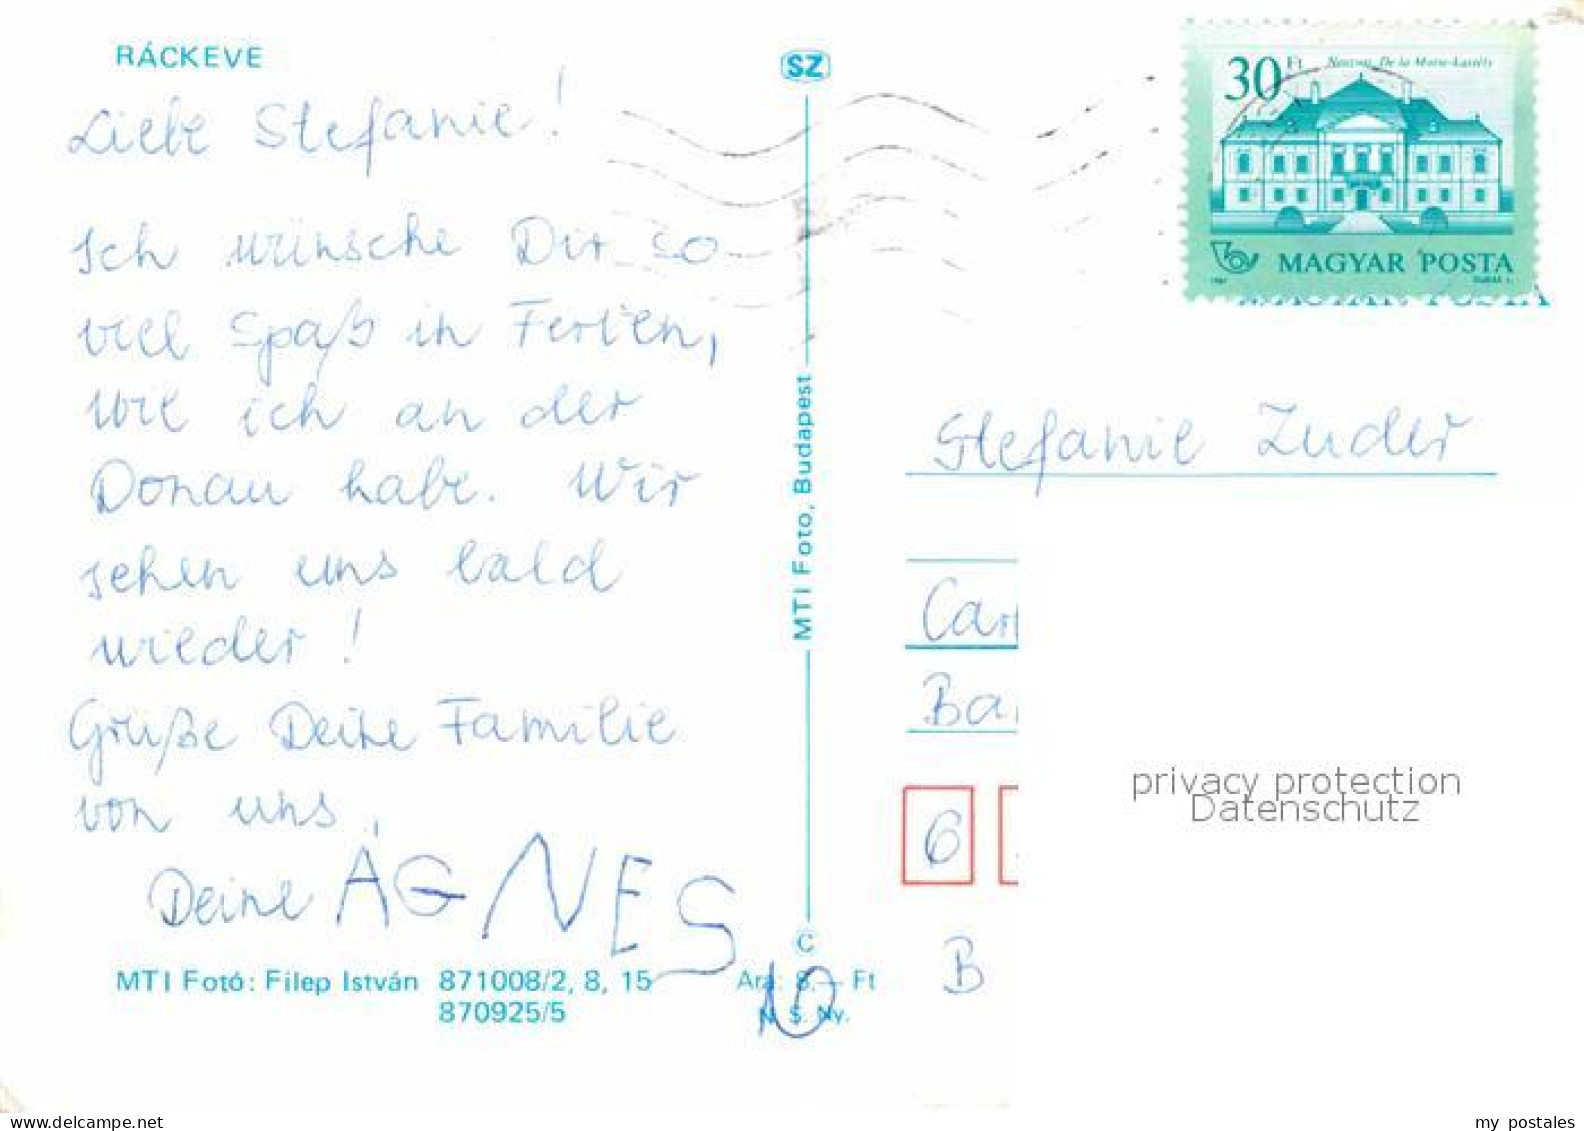 RÁCKEVE
SZ
Liebe Stefanie!
Ich wünsche Dir so
viel Spaß in Ferien,
wie ich an der
Donau habe. Wir
sehen uns bald
wieder!
Grüße Deine Familie
von uns,
Deine ÁGNES
MTI Fotó: Filep István 871008/2, 8, 15
870925/5
Ára: 8,— Ft
N. S. Ny.
10
C
MTI Foto, Budapest
30 Ft
De la Motte-Kastély
MAGYAR POSTA
MAGYAR POSTA
Stefanie Zuder
Car
Ba
6
B
privacy protection
Datenschutz
www.delcampe.net
my_postales